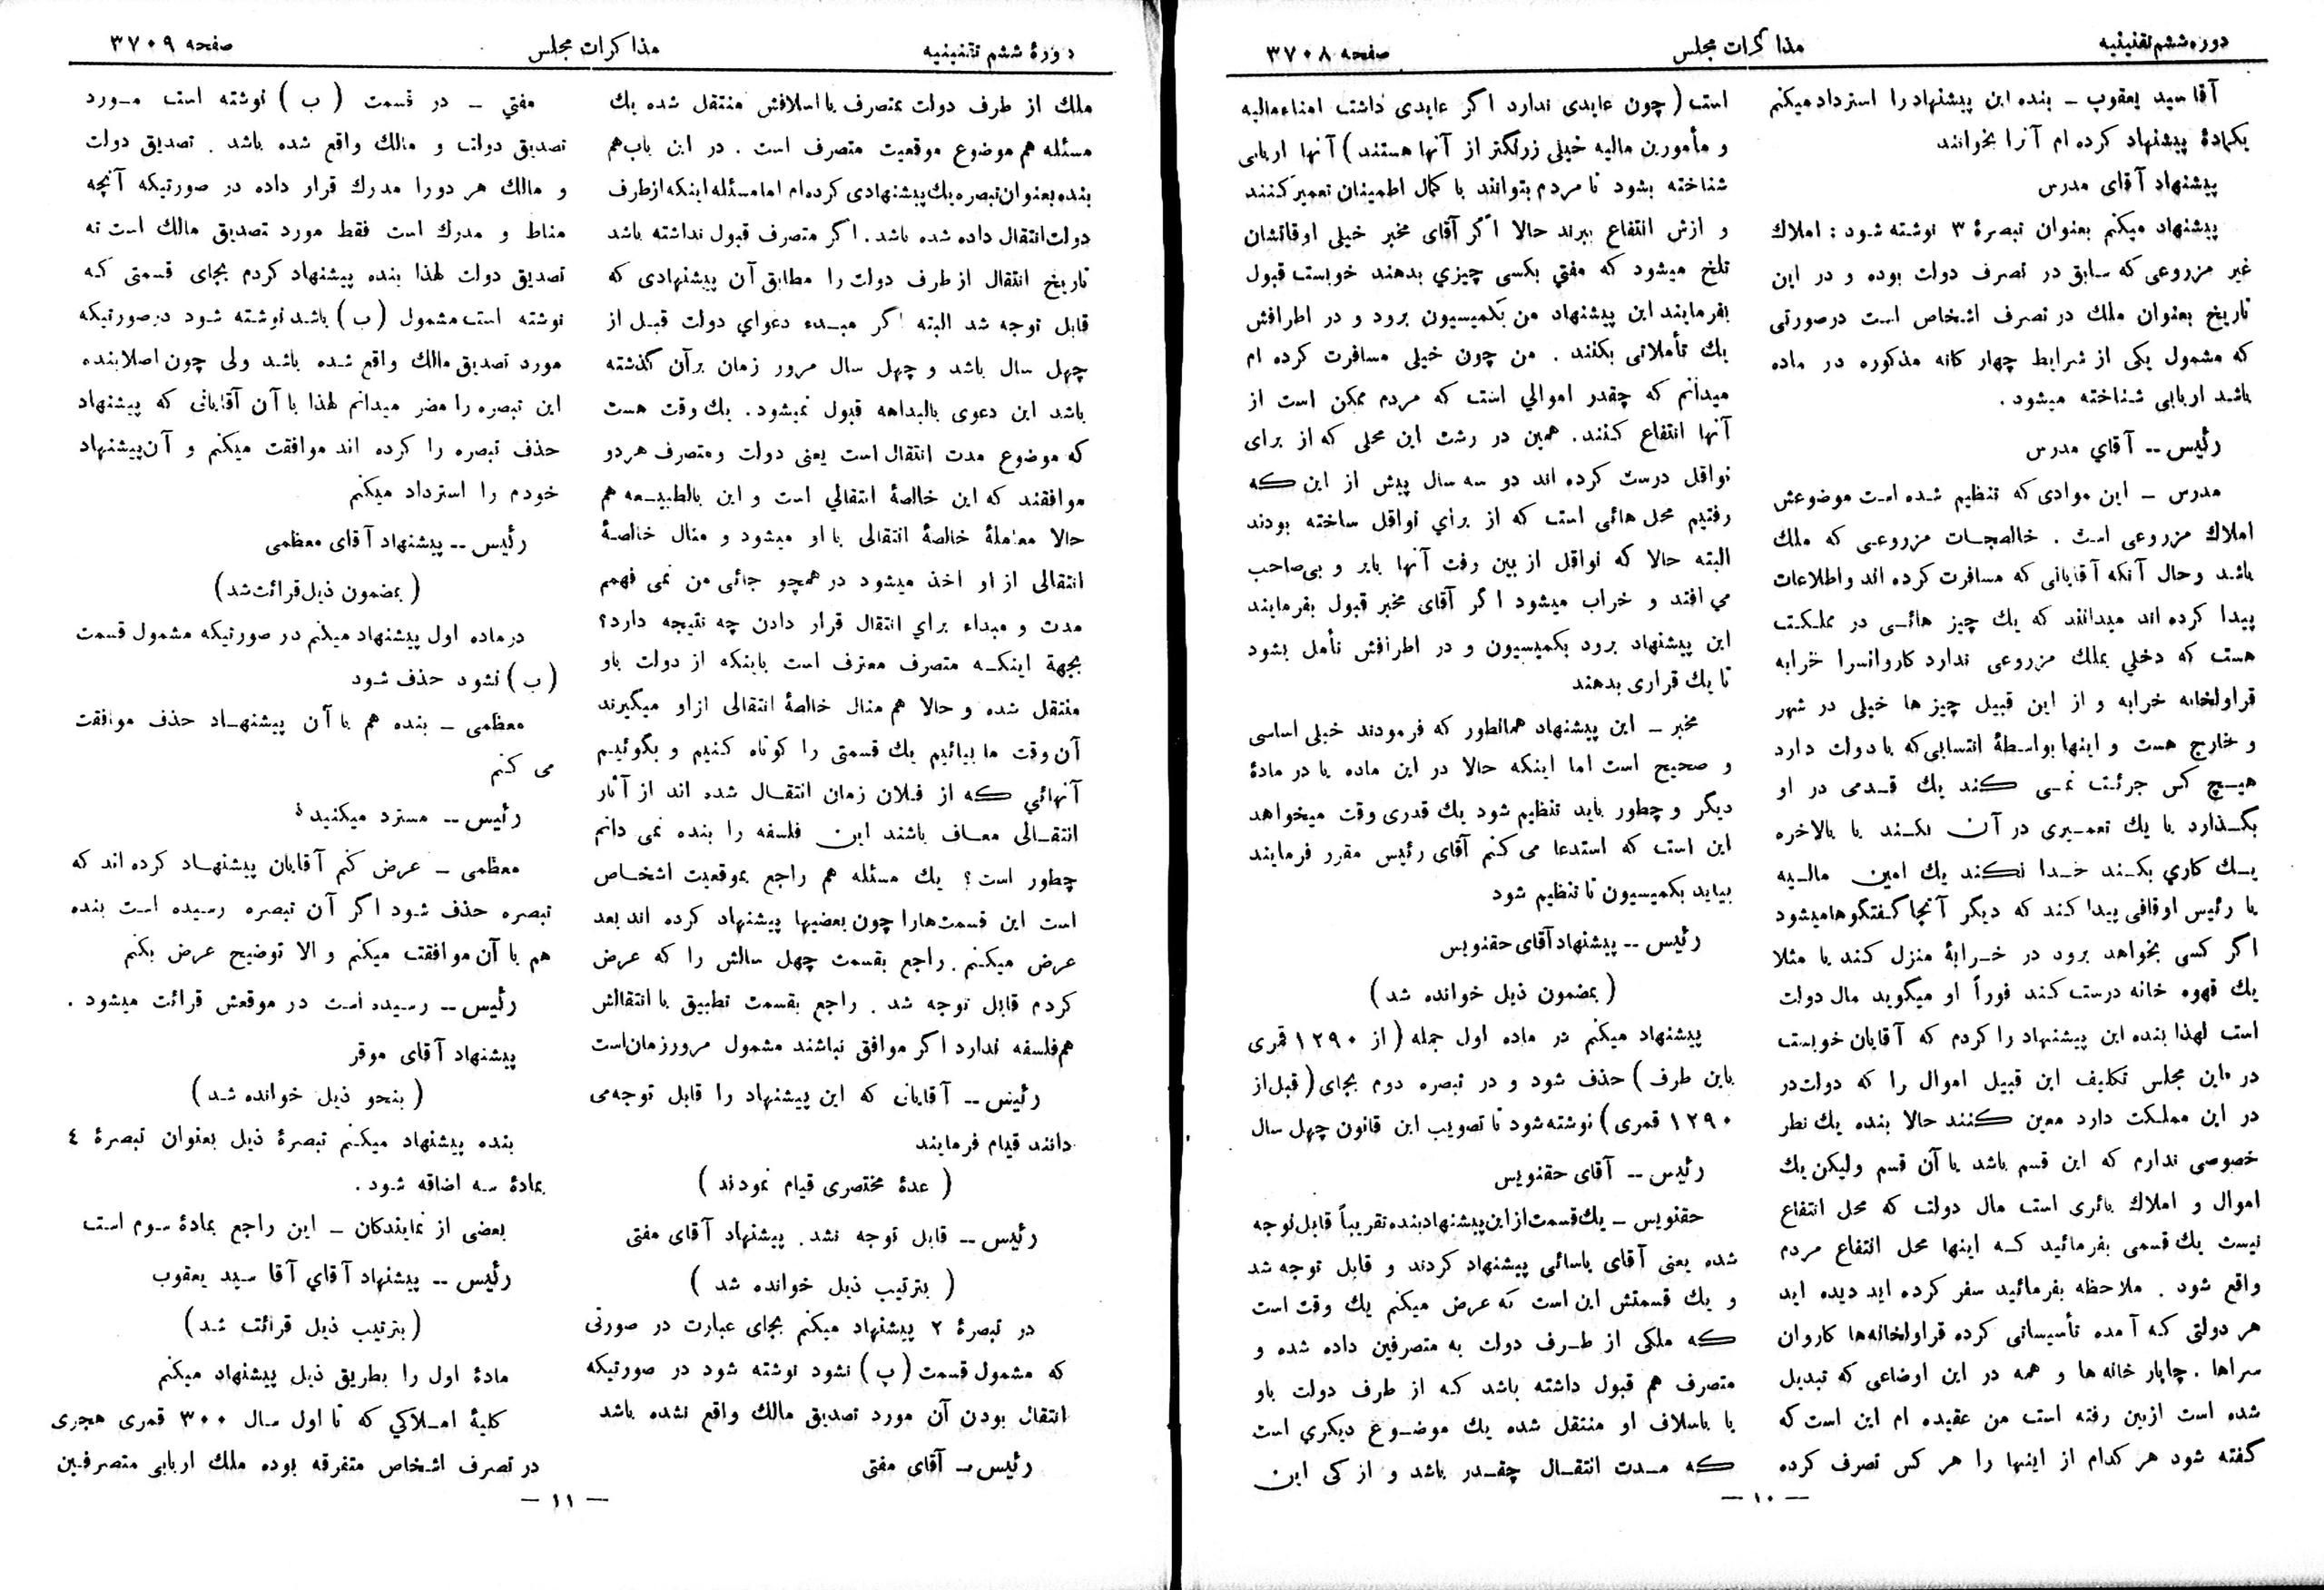 دوره ششم تقنینیه
مذاکرات مجلس
صفحه ۳۷۰۸
آقا سید یعقوب ـ بنده این پیشنهاد را استرداد میکنم
یکمادهٔ پیشنهاد کرده ام آنرا بخوانند
پیشنهاد آقای مدرس
پیشنهاد میکنم بعنوان تبصرهٔ ۳ نوشته شود : املاك
غیر مزروعی که سابق در تصرف دولت بوده و در این
تاریخ بعنوان ملك در تصرف اشخاص است درصورتی
که مشمول یکی از شرایط چهار گانه مذکوره در ماده
باشد اربابی شناخته میشود .
رئیس -- آقاي مدرس
مدرس ـ این موادی که تنظیم شده است موضوعش
املاك مزروعی است . خالصجات مزروعی که ملك
باشد وحال آنکه آقایانی که مسافرت کرده اند و اطلاعات
پیدا کرده اند میدانند که یك چیز هائی در مملکت
هست که دخلي بملك مزروعی ندارد کاروانسرا خرابه
قراولخانه خرابه و از این قبیل چیز ها خیلی در شهر
و خارج هست و اینها بواسطهٔ انتسابی که با دولت دارد
هیچ کس جرئت نمی کند یك قدمی در او
بگذارد یا یك تعمیری در آن بکند یا بالاخره
یك کاري بکند خدا نکند یك امین مالیه
یا رئیس اوقافی پیدا کند که دیگر آنجا گفتگوها میشود
اگر کسی بخواهد برود در خرابهٔ منزل کند یا مثلا
یك قهوه خانه درست کند فوراً او میگوید مال دولت
است لهذا بنده این پیشنهاد را کردم که آقایان خوبست
در این مجلس تکلیف این قبیل اموال را که دولت در
در این مملکت دارد معین کنند حالا بنده یك نظر
خصوصی ندارم که این قسم باشد یا آن قسم ولیکن یك
اموال و املاك بائری است مال دولت که محل انتفاع
نیست یك قسمی بفرمائید که اینها محل انتفاع مردم
واقع شود . ملاحظه بفرمائید سفر کرده اید دیده اید
هر دولتی که آمده تأسیساتی کرده قراولخانه‌ها کاروان
سراها . چاپار خانه ها و همه در این اوضاعی که تبدیل
شده است ازبین رفته است من عقیده ام این است که
گفته شود هر کدام از اینها را هر کس تصرف کرده
است ( چون عایدی ندارد اگر عایدی داشت امناء مالیه
و مأمورین مالیه خیلی زرنگتر از آنها هستند ) آنها اربابی
شناخته بشود تا مردم بتوانند با کمال اطمینان تعمیر کنند
و ازش انتفاع ببرند حالا اگر آقای مخبر خیلی اوقاتشان
تلخ میشود که مفتي بکسی چیزي بدهند خوبست قبول
بفرمایند این پیشنهاد من بکمیسیون برود و در اطرافش
یك تأملاتی بکنند . من چون خیلی مسافرت کرده ام
میدانم که چقدر اموالي است که مردم ممکن است از
آنها انتفاع کنند . همین در رشت این محلی که از برای
نواقل درست کرده اند دو سه سال پیش از این که
رفتیم محل هائی است که از براي نواقل ساخته بودند
البته حالا که نواقل از بین رفت آنها بایر و بی صاحب
می افتد و خراب میشود اگر آقای مخبر قبول بفرمایند
این پیشنهاد برود بکمیسیون و در اطرافش تأمل بشود
تا یك قراری بدهند
مخبر ـ این پیشنهاد همانطور که فرمودند خیلی اساسی
و صحیح است اما اینکه حالا در این ماده یا در مادهٔ
دیگر و چطور باید تنظیم شود یك قدری وقت میخواهد
این است که استدعا می کنم آقای رئیس مقرر فرمایند
بیاید بکمیسیون تا تنظیم شود
رئیس -- پیشنهاد آقای حقنویس
( بمضمون ذیل خوانده شد )
پیشنهاد میکنم در ماده اول جمله ( از ۱۲۹۰ قمری
باین طرف ) حذف شود و در تبصره دوم بجای ( قبل از
۱۲۹۰ قمری ) نوشته شود تا تصویب این قانون چهل سال
رئیس -- آقای حقنویس
حقنویس ـ یك قسمت از این پیشنهاد بنده تقریباً قابل توجه
شده یعنی آقای یاسائی پیشنهاد کردند و قابل توجه شد
و یك قسمتش این است که عرض میکنم یك وقت است
که ملکی از طرف دولت به متصرفین داده شده و
متصرف هم قبول داشته باشد که از طرف دولت باو
یا باسلاف او منتقل شده یك موضوع دیگري است
که مدت انتقال چقدر باشد و از کی این
ـ ۱۰ ـ
دورهٔ ششم تقنینیه
مذاکرات مجلس
صفحه ۳۷۰۹
ملك از طرف دولت بمتصرف یا اسلافش منتقل شده یك
مسئله هم موضوع موقعیت متصرف است . در این باب هم
بنده بعنوان تبصره یك پیشنهادی کرده ام اما مسئله اینکه از طرف
دولت انتقال داده شده باشد . اگر متصرف قبول نداشته باشد
تاریخ انتقال از طرف دولت را مطابق آن پیشنهادی که
قابل توجه شد البته اگر مبدء دعواي دولت قبل از
چهل سال باشد و چهل سال مرور زمان برآن گذشته
باشد این دعوی بالبداهه قبول نمیشود . یك وقت هست
که موضوع مدت انتقال است یعنی دولت و متصرف هردو
موافقند که این خالصهٔ انتقالي است و این بالطبیعه هم
حالا معاملهٔ خالصهٔ انتقالی با او میشود و منال خالصهٔ
انتقالی از او اخذ میشود در همچو جائی من نمی فهمم
مدت و مبداء براي انتقال قرار دادن چه نتیجه دارد؟
بجهة اینکه متصرف معترف است باینکه از دولت باو
منتقل شده و حالا هم منال خالصهٔ انتقالی از او میگیرند
آن وقت ما بیائیم یك قسمتی را کوتاه کنیم و بگوئیم
آنهائي که از فلان زمان انتقال شده اند از آثار
انتقالی معاف باشند این فلسفه را بنده نمی دانم
چطور است ؟ یك مسئله هم راجع بموقعیت اشخاص
است این قسمت‌هارا چون بعضیها پیشنهاد کرده اند بعد
عرض میکنم . راجع بقسمت چهل سالش را که عرض
کردم قابل توجه شد . راجع بقسمت تطبیق با انتقالش
هم فلسفه ندارد اگر موافق نباشند مشمول مرور زمان است
رئیس -- آقایان که این پیشنهاد را قابل توجه می
دانند قیام فرمایند
( عدهٔ مختصری قیام نمودند )
رئیس -- قابل توجه نشد . پیشنهاد آقای مفتی
( بترتیب ذیل خوانده شد )
در تبصرهٔ ۲ پیشنهاد میکنم بجای عبارت در صورتی
که مشمول قسمت ( پ ) نشود نوشته شود در صورتیکه
انتقال بودن آن مورد تصدیق مالك واقع نشده باشد
رئیس -- آقای مفتی
مفتي ـ در قسمت ( ب ) نوشته است مورد
تصدیق دولت و مالك واقع شده باشد . تصدیق دولت
و مالك هر دورا مدرك قرار داده در صورتیکه آنچه
مناط و مدرك است فقط مورد تصدیق مالك است نه
تصدیق دولت لهذا بنده پیشنهاد کردم بجای قسمتی که
نوشته است مشمول ( ب ) باشد نوشته شود درصورتیکه
مورد تصدیق مالك واقع شده باشد ولی چون اصلا بنده
این تبصره را مضر میدانم لهذا با آن آقایانی که پیشنهاد
حذف تبصره را کرده اند موافقت میکنم و آن پیشنهاد
خودم را استرداد میکنم
رئیس -- پیشنهاد آقای معظمی
( بمضمون ذیل قرائت شد )
در ماده اول پیشنهاد میکنم در صورتیکه مشمول قسمت
( ب ) نشود حذف شود
معظمی ـ بنده هم با آن پیشنهاد حذف موافقت
می کنم
رئیس -- مسترد میکنید ؟
معظمی ـ عرض کنم آقایان پیشنهاد کرده اند که
تبصره حذف شود اگر آن تبصره رسیده است بنده
هم با آن موافقت میکنم و الا توضیح عرض بکنم
رئیس -- رسیده است در موقعش قرائت میشود .
پیشنهاد آقای موقر
( بنحو ذیل خوانده شد )
بنده پیشنهاد میکنم تبصرهٔ ذیل بعنوان تبصرهٔ ٤
بمادهٔ سه اضافه شود .
بعضی از نمایندگان ـ این راجع بمادهٔ سوم است
رئیس -- پیشنهاد آقاي آقا سید یعقوب
( بترتیب ذیل قرائت شد )
مادهٔ اول را بطریق ذیل پیشنهاد میکنم
کلیهٔ املاکي که تا اول سال ۳۰۰ قمری هجری
در تصرف اشخاص متفرقه بوده ملك اربابی متصرفین
ـ ۱۱ ـ